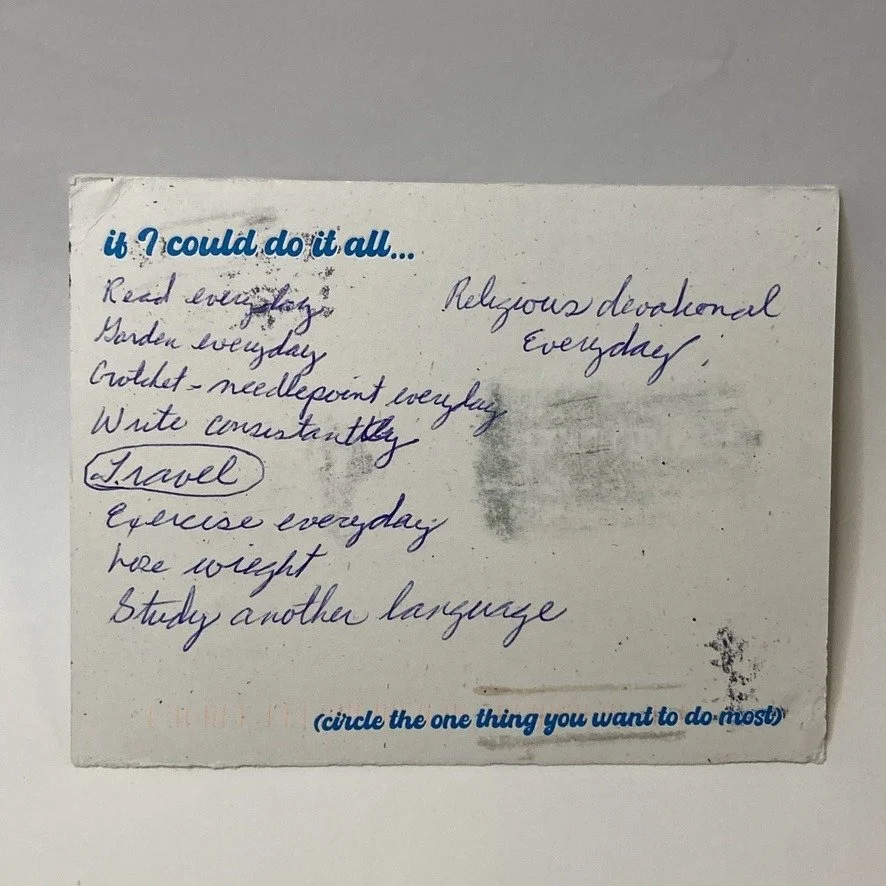 if I could do it all...
Read everyday
Garden everyday
Crotchet - needlepoint everyday
Write consistantly
Travel
Exercise everyday
Lose wieght
Study another language
Religious devotional
Everyday
(circle the one thing you want to do most)